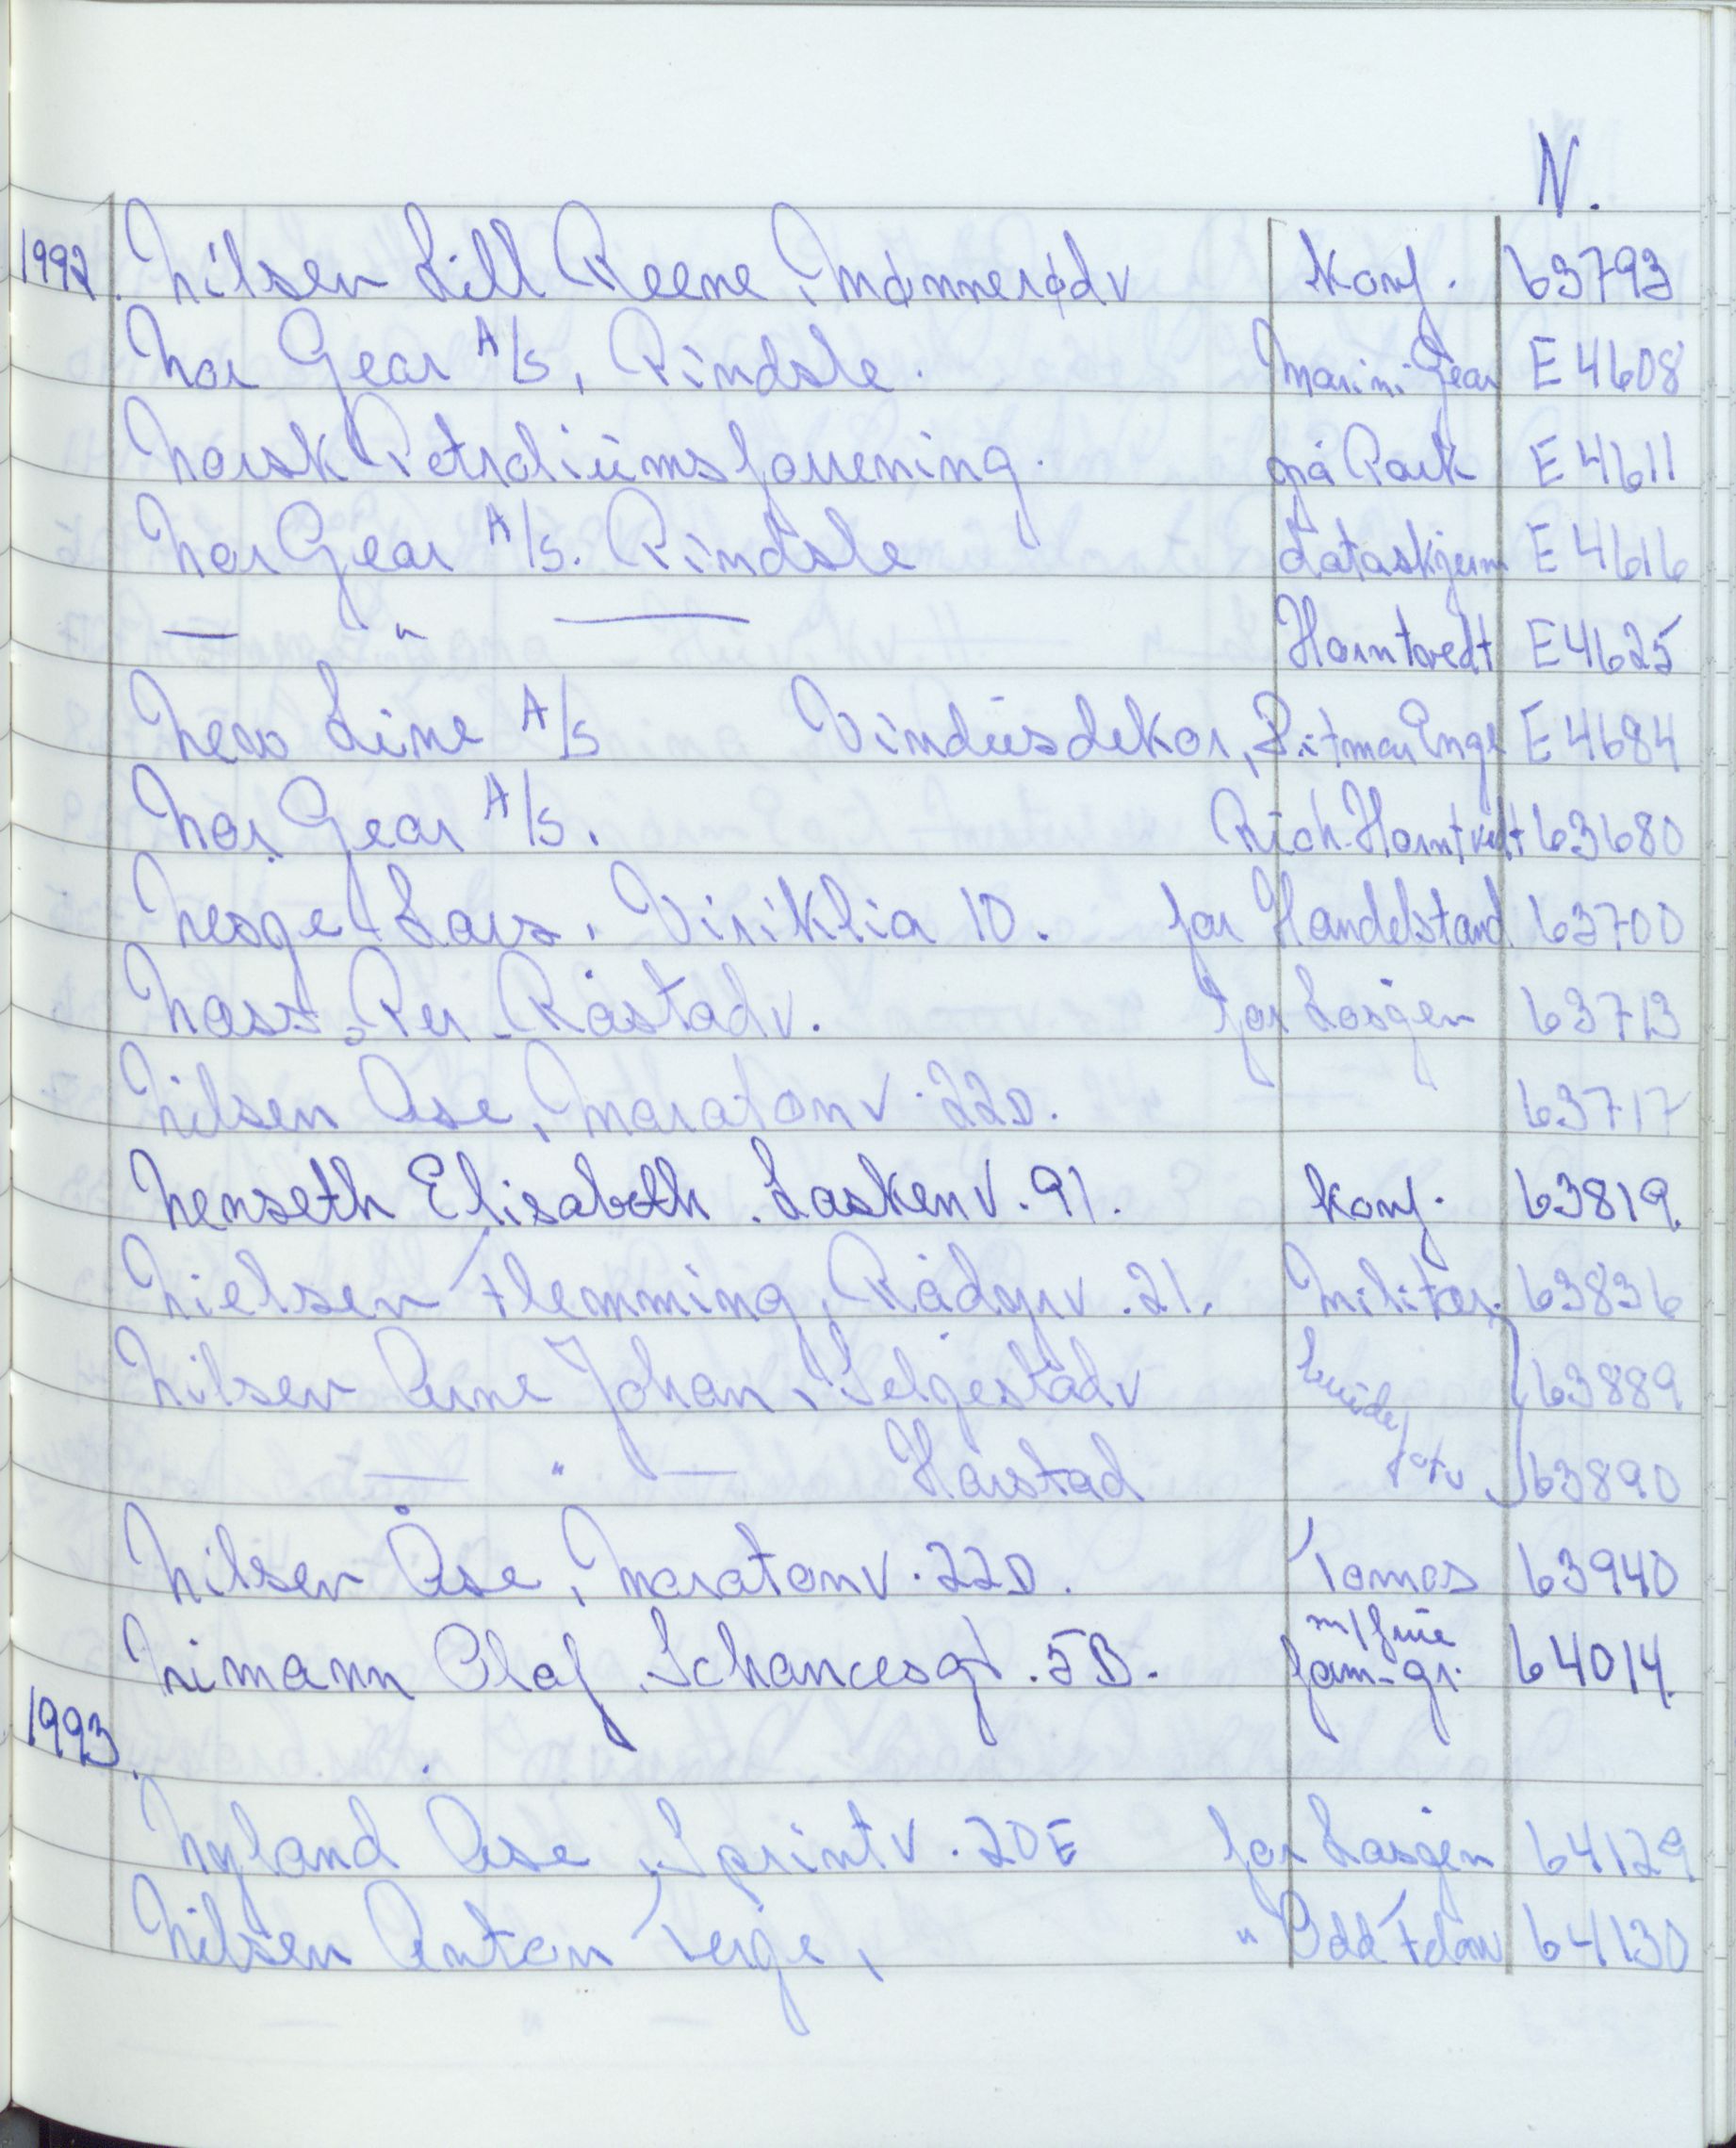 N.
1992. Nilsen Lill Reene, Mønnerødv Konf. 63793
Nor Gear A/S, Rindsle. Marin.Gear E 4608
Norsk Petroliumsforrening. på Park E 4611
Nor Gear A/S. Rindsle dataskjerm E 4616
— " — Horntvedt E 4625
New Line A/S Vindusdekor, E 4684
Nor Gear A/S. Rich. Horntvedt 63680
Nesget Lars, Viriklia 10. for Handelstand 63700
Nass, Per Råstadv. for Losjen 63713
Nilsen Åse, Maratonv. 22D. 63717
Nenseth Elisabeth. Laskenv. 91. Konf. 63819.
Nielsen Flemming, Rådyrv. 21. Militær. 63836
Nilsen Arne Johan, Selgestadv brude 63889
— " — Harstad foto 63890
Nilsen Åse, Maratonv. 22D. Tomas 63940
m/frue
Nimann Olaf, Schancesgt. 5B. fam-gr. 64014.
1993.
Nyland Åse, Sprintv. 20E for Losjen 64129
Nilsen Anton Terje, " Odd Felow 64130